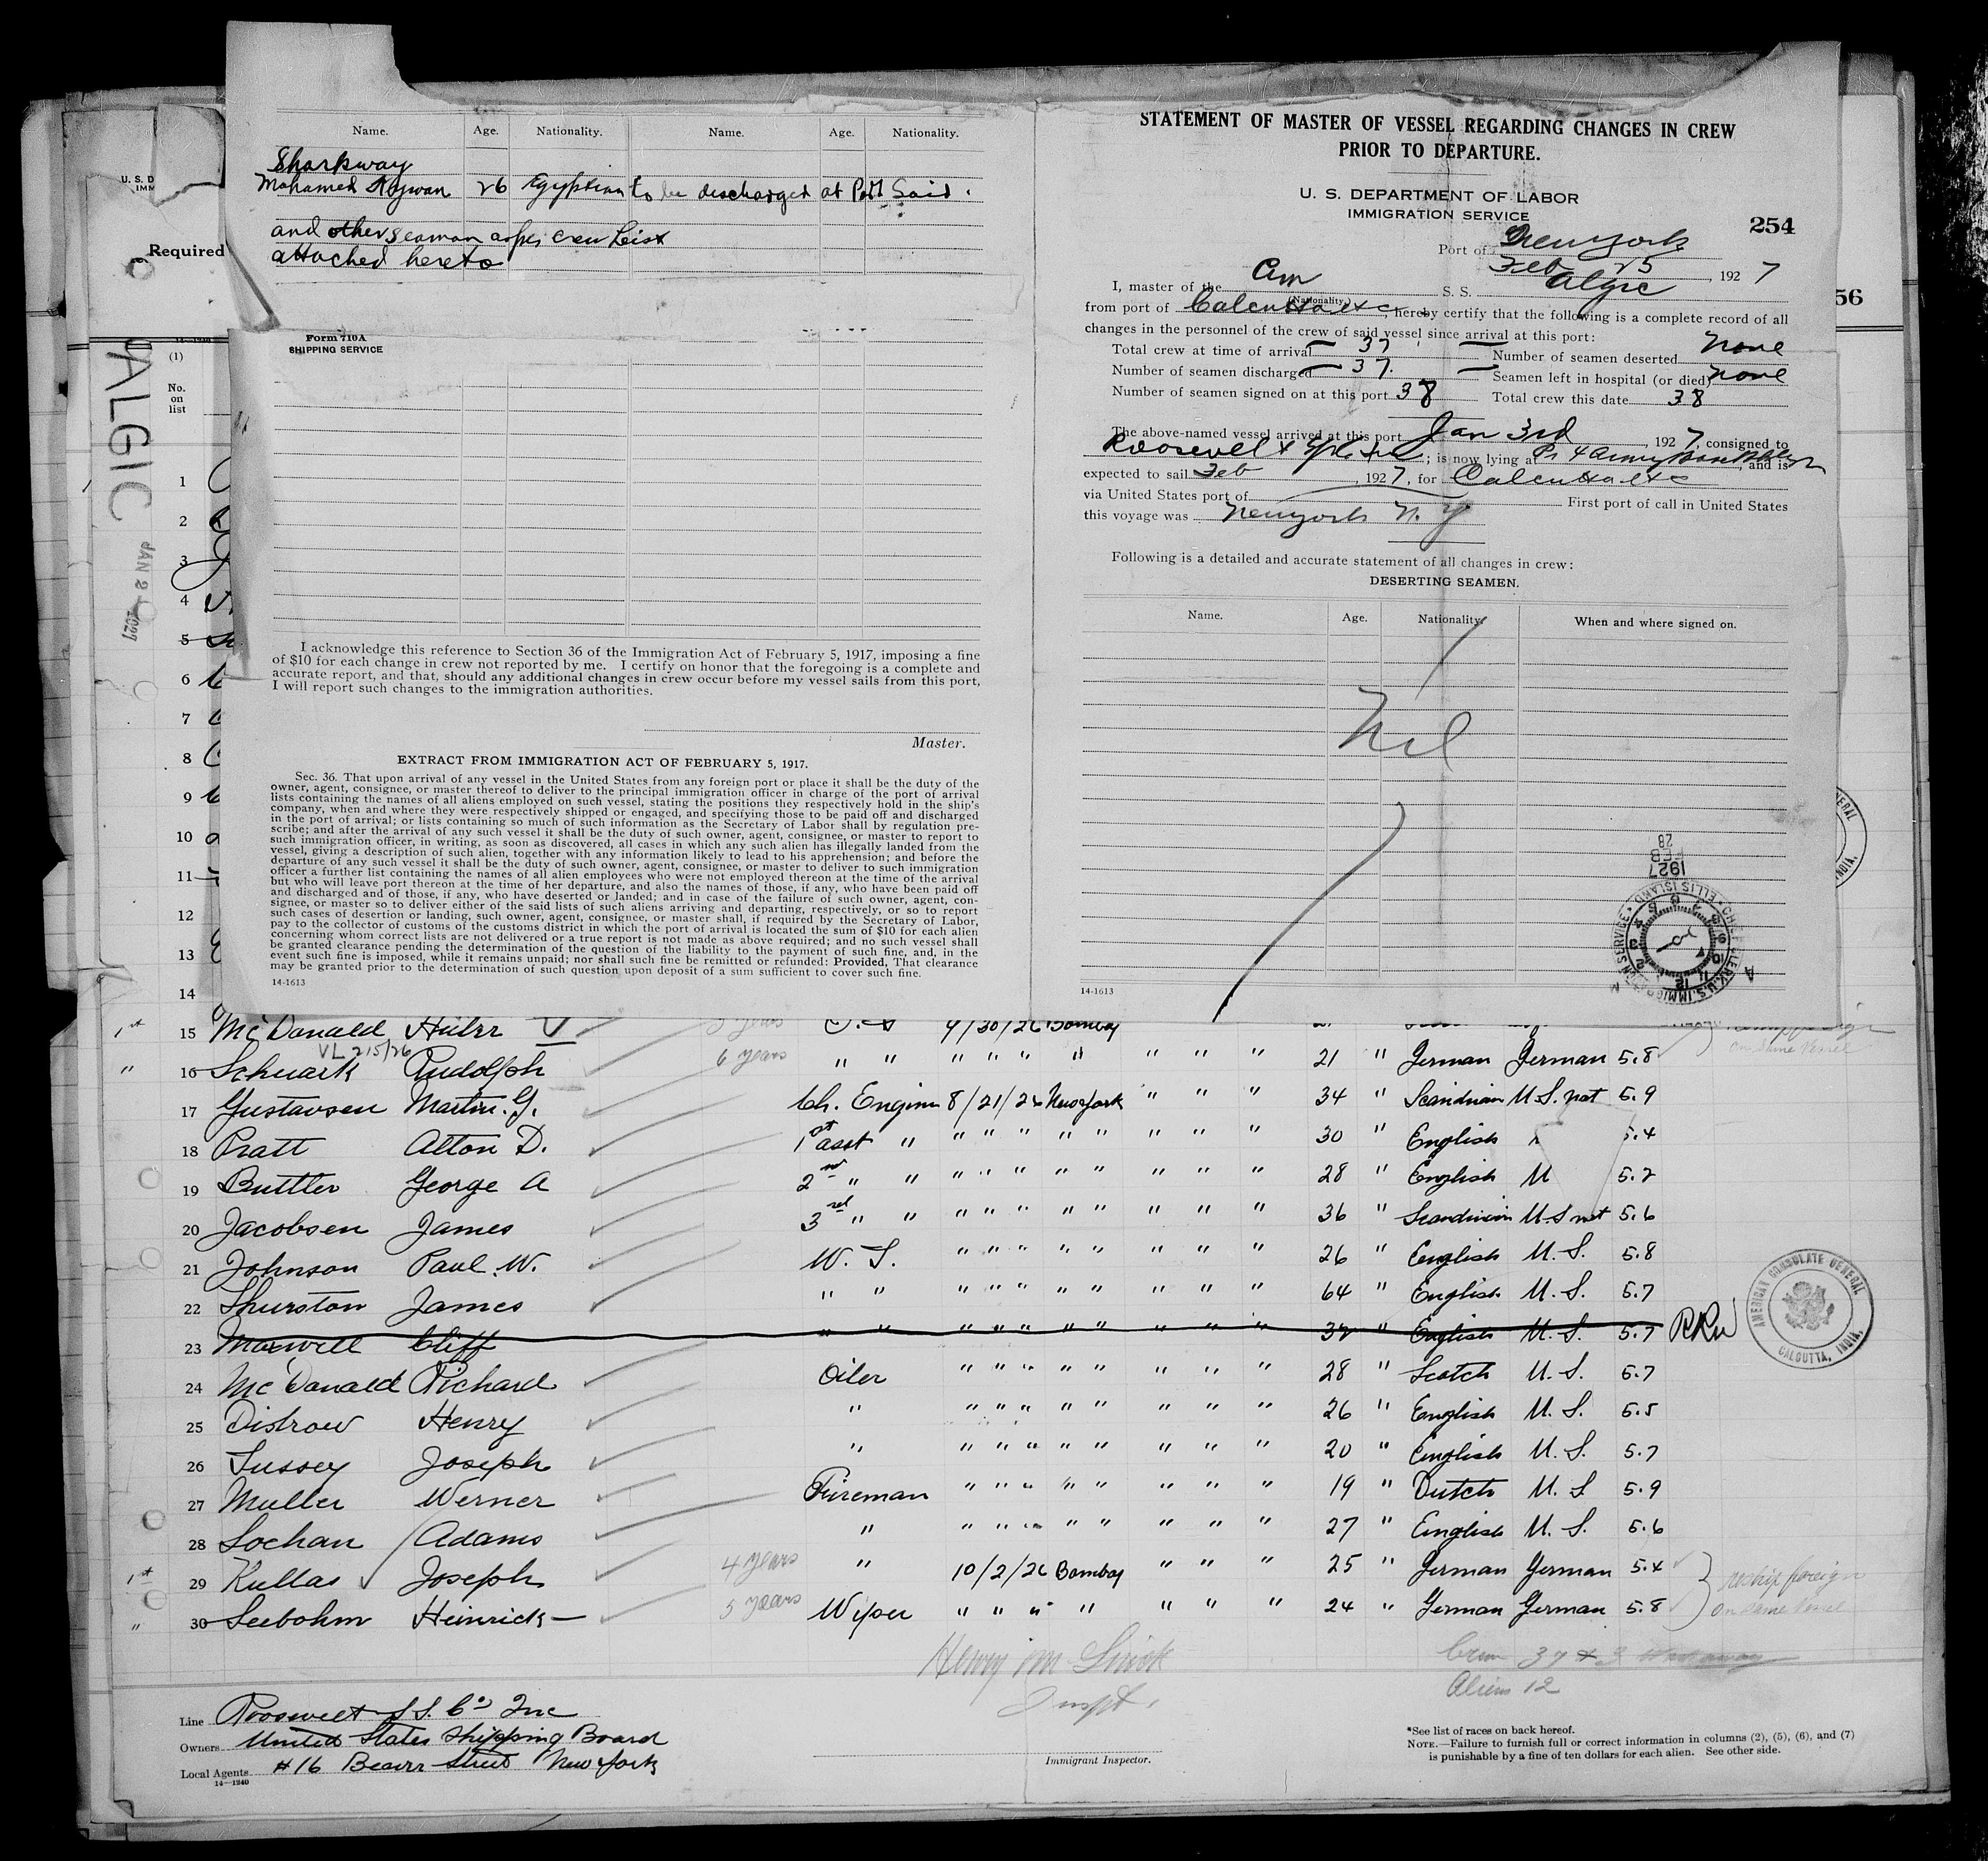 Name. Age. Nationality. Name. Age. Nationality.
Sharkway
Mohamed 26 Egyptian to be discharged at Port Said.
and other seaman as per Crew List
attached hereto
Required
Form 710A
SHIPPING SERVICE
I acknowledge this reference to Section 36 of the Immigration Act of February 5, 1917, imposing a fine
of $10 for each change in crew not reported by me. I certify on honor that the foregoing is a complete and
accurate report, and that, should any additional changes in crew occur before my vessel sails from this port,
I will report such changes to the immigration authorities.
Master.
EXTRACT FROM IMMIGRATION ACT OF FEBRUARY 5, 1917.
Sec. 36. That upon arrival of any vessel in the United States from any foreign port or place it shall be the duty of the
owner, agent, consignee, or master thereof to deliver to the principal immigration officer in charge of the port of arrival
lists containing the names of all aliens employed on such vessel, stating the positions they respectively hold in the ship's
company, when and where they were respectively shipped or engaged, and specifying those to be paid off and discharged
in the port of arrival; or lists containing so much of such information as the Secretary of Labor shall by regulation pre-
scribe; and after the arrival of any such vessel it shall be the duty of such owner, agent, consignee, or master to report to
such immigration officer, in writing, as soon as discovered, all cases in which any such alien has illegally landed from the
vessel, giving a description of such alien, together with any information likely to lead to his apprehension; and before the
departure of any such vessel it shall be the duty of such owner, agent, consignee, or master to deliver to such immigration
officer a further list containing the names of all alien employees who were not employed thereon at the time of the arrival
but who will leave port thereon at the time of her departure, and also the names of those, if any, who have been paid off
and discharged and of those, if any, who have deserted or landed; and in case of the failure of such owner, agent, con-
signee, or master so to deliver either of the said lists of such aliens arriving and departing, respectively, or so to report
such cases of desertion or landing, such owner, agent, consignee, or master shall, if required by the Secretary of Labor,
pay to the collector of customs of the customs district in which the port of arrival is located the sum of $10 for each alien
concerning whom correct lists are not delivered or a true report is not made as above required; and no such vessel shall
be granted clearance pending the determination of the question of the liability to the payment of such fine, and, in the
event such fine is imposed, while it remains unpaid; nor shall such fine be remitted or refunded: Provided, That clearance
may be granted prior to the determination of such question upon deposit of a sum sufficient to cover such fine.
14-1613
STATEMENT OF MASTER OF VESSEL REGARDING CHANGES IN CREW
PRIOR TO DEPARTURE.
U. S. DEPARTMENT OF LABOR
IMMIGRATION SERVICE
254
Port of New York
Feb 25, 1927
I, master of the Am S. S. Algic
(Nationality)
from port of Calcutta etc, hereby certify that the following is a complete record of all
changes in the personnel of the crew of said vessel since arrival at this port:
Total crew at time of arrival 37 Number of seamen deserted None
Number of seamen discharged 37. Seamen left in hospital (or died) None
Number of seamen signed on at this port 38 Total crew this date 38
The above-named vessel arrived at this port Jan 3rd, 1927, consigned to
Roosevelt; is now lying at Pr 4 Army Base, and is
expected to sail Feb, 1927, for Calcutta etc
via United States port of First port of call in United States
this voyage was New York N. Y
Following is a detailed and accurate statement of all changes in crew:
DESERTING SEAMEN.
Name. Age. Nationality. When and where signed on.
Nil
1927
FEB
28
14-1613
56
ALGIC
JAN 2 1927
(1)
No.
on
list
1
2
3
4
5
6
7
8
9
10
11
12
13
14
1st 15 McDonald 9/30/26 Bombay
VL 215/26
" 16 Schuark Rudolph 6 years " " " " " " " " " 21 " German German 5.8
17 Gustavsen Martin. G. Ch. Engine 8/21/26 New York " " " 34 " Scandinian U.S. nat 5.9
18 Pratt Alton D. 1st asst " " " " " " " " " 30 " English 5.4
19 Buttler George A 2nd " " " " " " " " " " 28 " English U 5.2
20 Jacobsen James 3rd " " " " " " " " " " 36 " Scandinian U.S nat 5.6
21 Johnson Paul. W. W. T. " " " " " " " " 26 " English U. S. 5.8
22 Thurston James " " " " " " " " " " 64 " English U. S. 5.7
23 Maxwell Cliff " " " " " " " " " " 32 " English U. S. 5.7 RRW
24 McDonald Richard Oiler " " " " " " " " 28 " Scotch U. S. 5.7
25 Distrow Henry " " " " " " " " " 26 " English U. S. 5.5
26 Tussey Joseph " " " " " " " " " 20 " English U. S. 5.7
27 Muller Werner Fireman " " " " " " " " 19 " Dutch U. S 5.9
28 Lochan Adams " " " " " " " " " 27 " English U. S. 5.6
1st 29 Kullas Joseph 4 years " 10/2/26 Bombay " " " 25 " German German 5.4 reship foreign
" 30 Seebohm Heinrich 5 years Wiper " " " " " " " 24 " German German 5.8 on same vessel
AMERICAN CONSULATE GENERAL
CALCUTTA, INDIA.
Crew 37
Aliens 12
Inspt.
Line Roosevelt S.S. Co Inc
Owners United States Shipping Board
Local Agents #16 Beaver Street New York
14-1240
Immigrant Inspector.
*See list of races on back hereof.
NOTE.—Failure to furnish full or correct information in columns (2), (5), (6), and (7)
is punishable by a fine of ten dollars for each alien. See other side.